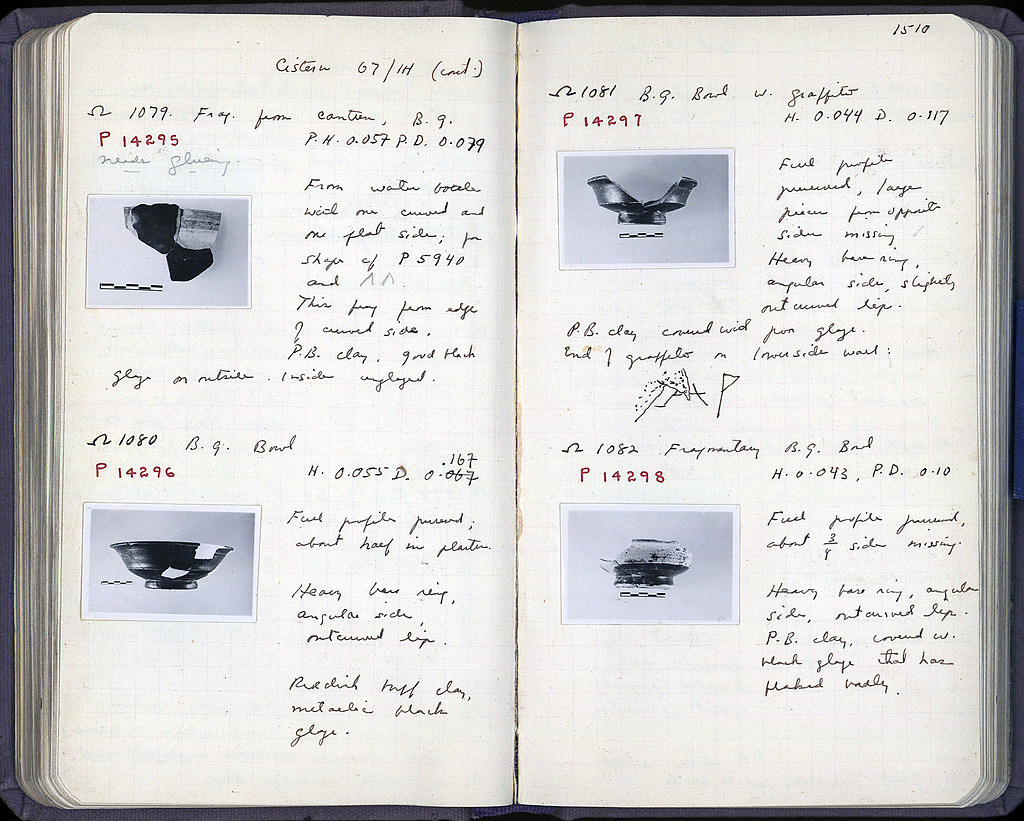 Cistern G7/1H (cont.)
Ω 1079. Frag. from canteen, B.G.
P 14295 P.H. 0.057 P.D. 0.079
needs glueing.
From water bottle
with one curved and
one flat side; for
shape cf P 5940
and ΛΛ.
This frag from edge
of curved side.
P.B. clay, good black
glaze on outside. Inside unglazed.
Ω 1080 B.G. Bowl
.167
P 14296 H. 0.055 D. 0.067
Full profile preserved;
about half in plaster.
Heavy base ring,
angular side,
outcurved lip.
Reddish buff clay,
metallic black
glaze.
1510
Ω 1081 B.G. Bowl w. graffito
P 14297 H. 0.044 D. 0.117
Full profile
preserved, large
pieces from opposite
sides missing
Heavy base ring,
angular side, slightly
outcurved lip.
P.B. clay covered with poor glaze.
End of graffito on lower side wall:
Ρ
Ω 1082 Fragmentary B.G. Bowl
P 14298 H. 0.043, P.D. 0.10
Full profile preserved,
about 3/4 side missing.
Heavy base ring, angular
side, outcurved lip.
P.B. clay, covered w.
black glaze that has
flaked badly.